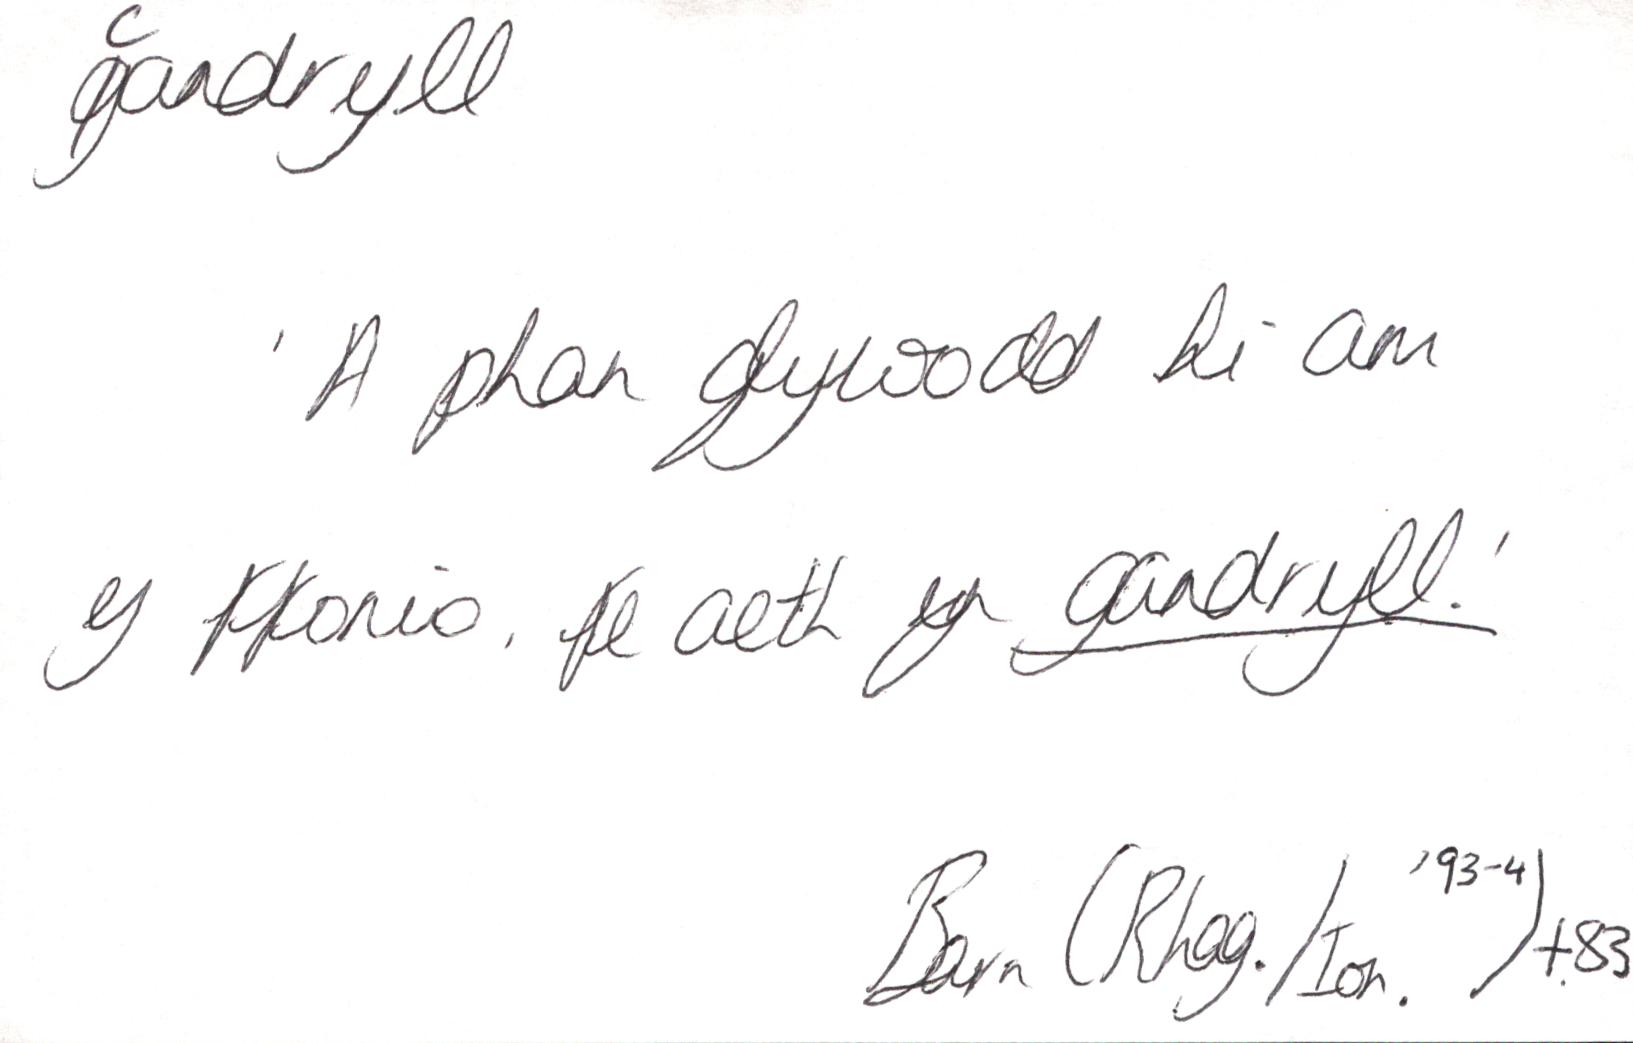 c
gandryll
'A phan glywodd hi am
y ffonio, fe aeth yn gandryll.'
Barn (Rhag./Ion. '93-4) t.83